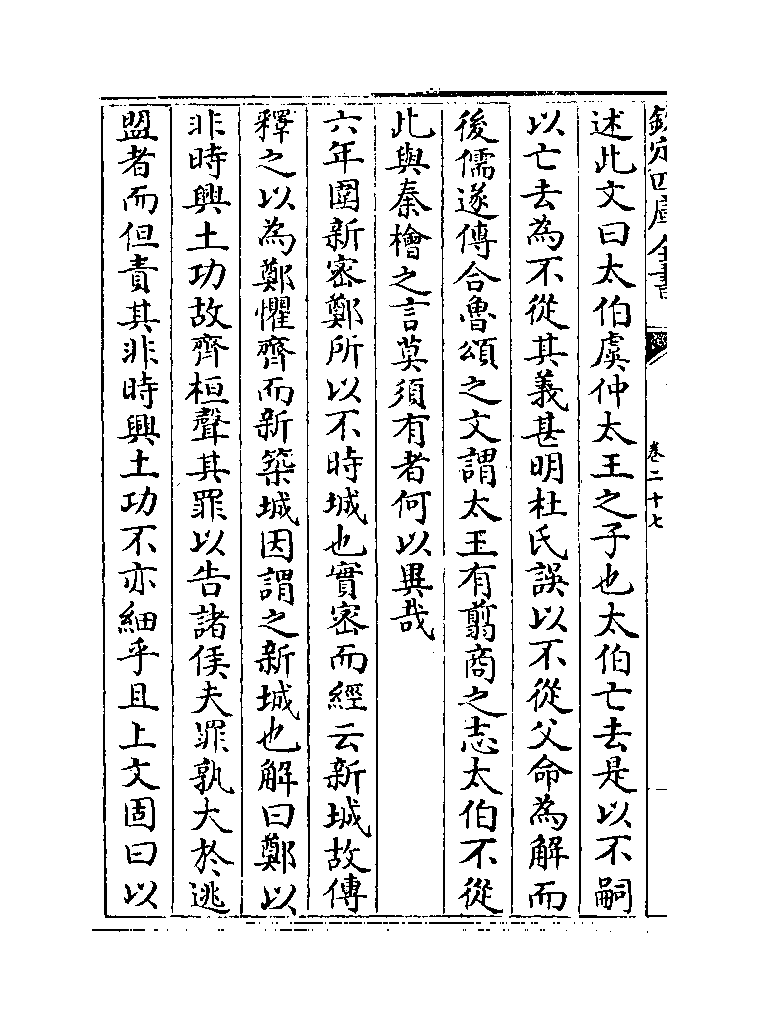 欽定四庫全書
卷二十七
述此文曰太伯虞仲太王之子也太伯亡去是以不嗣
以亡去為不從其義甚明杜氏誤以不從父命為解而
後儒遂傅合魯頌之文謂太王有翦商之志太伯不從
此與秦檜之言莫須有者何以異哉
六年圍新密鄭所以不時城也實密而經云新城故傳
釋之以為鄭懼齊而新築城因謂之新城也解曰鄭以
非時興土功故齊桓聲其罪以告諸侯夫罪孰大於逃
盟者而但責其非時興土功不亦細乎且上文固曰以